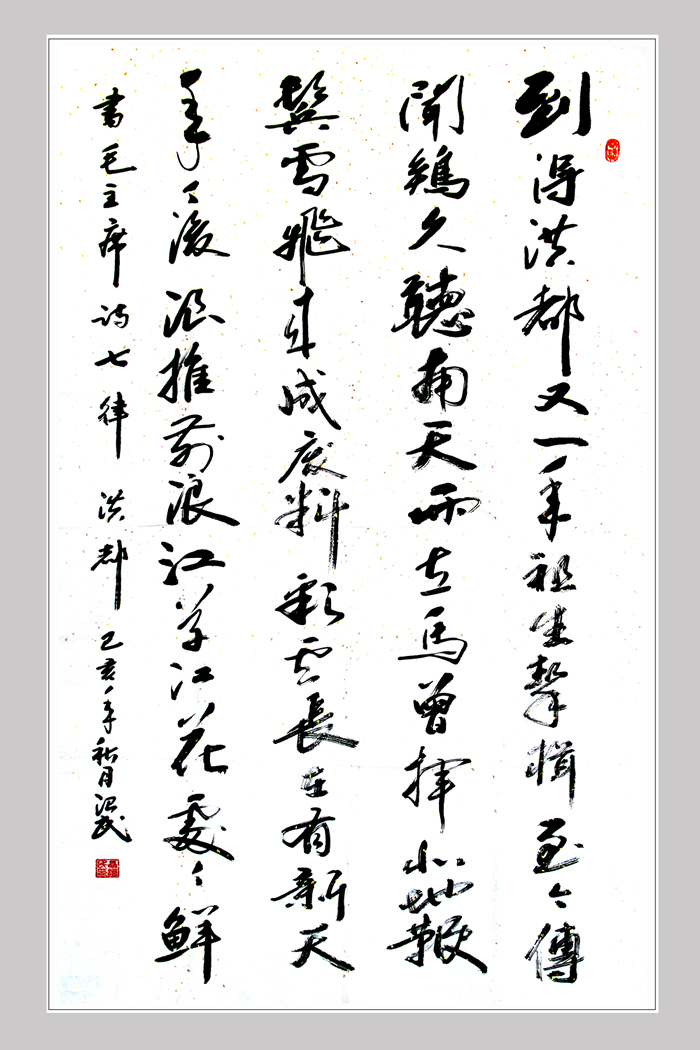 到得洪都又一年祖生擊楫至今傳
聞鷄久聽南天雨立馬曾揮北地鞭
鬢雪飛来成废料彩云長在有新天
年々後浪推前浪江草江花處々鮮
書毛主席诗七律洪都己亥年秋月